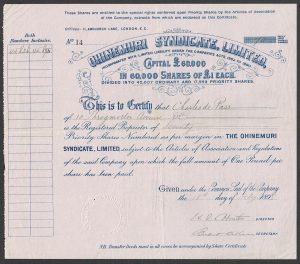 These Shares are entitled to the special rights conferred upon Priority Shares by the Articles of Association
of the Company, extracts from which are endorsed on this Certificate.
LONDON, E.C.
Both
Numbers Inclusive.
No 14
OHINEMURI SYNDICATE, LIMITED.
CAPITAL £60,000
IN 60,000 SHARES OF £1 EACH.
This is to Certify that Charles de
of 10 Throgmorton Avenue
is the Registered Proprietor of
Priority Shares Numbered as per margin in THE OHINEMURI
SYNDICATE, LIMITED subject to the Articles of Association and Regulations
of the said Company upon which the full amount of One Pound per
share has been paid.
Given under the Common Seal of the Company
the day of 189
DIRECTOR
SECRETARY
N.B. Transfer Deeds must in all cases be accompanied by Share Certificate